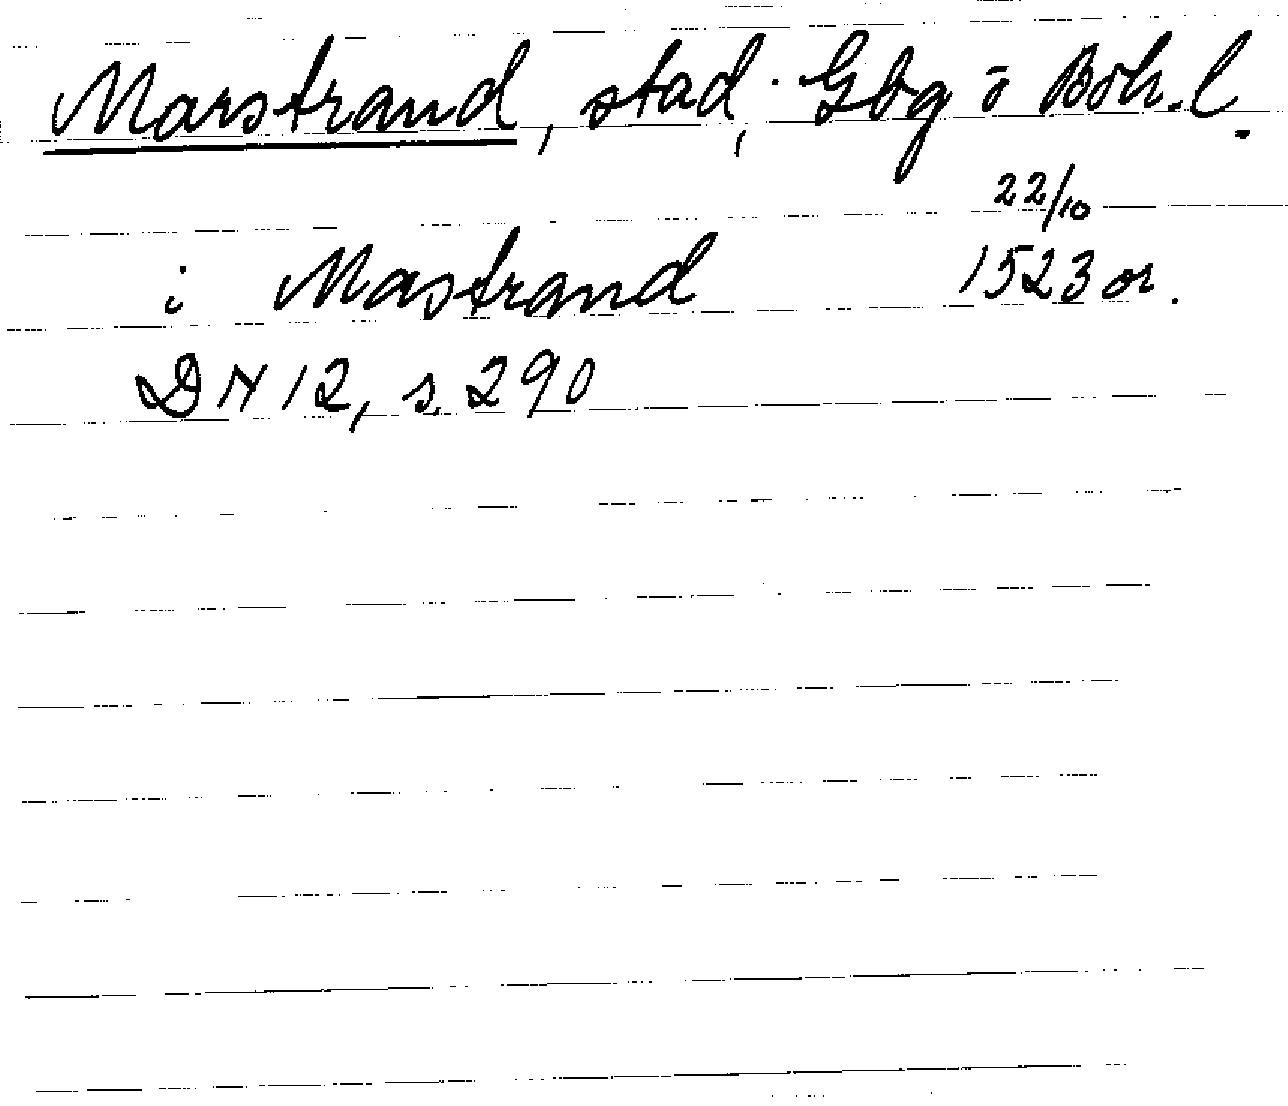 Marstrand, stad, Gbg o Boh. l.
22/10
i Mastrand 1523 or.
DN 12, s. 290